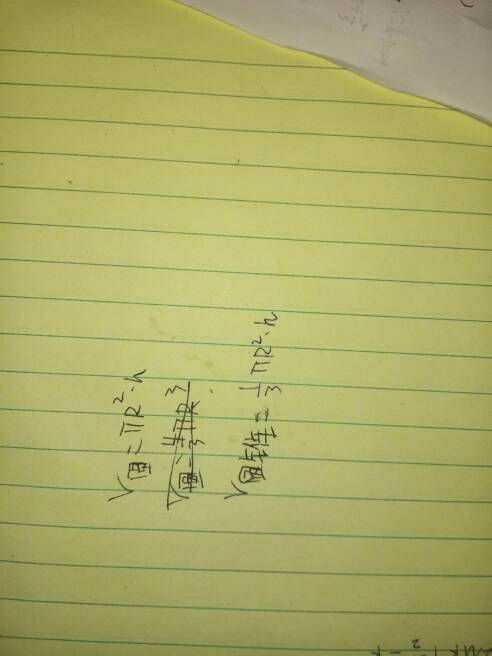 V圆=πR²·h
V圆=4/3πR³
V圆锥=1/3πR²·h